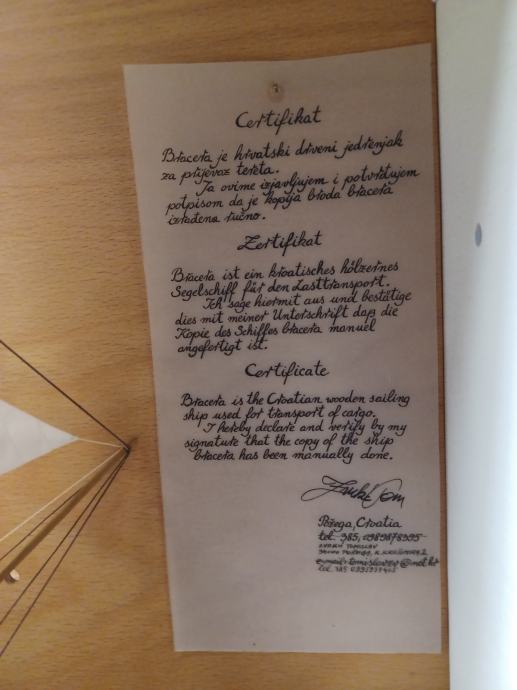 Certifikat
Bracera je hrvatski drveni jedrenjak
za prijevoz tereta.
Ja ovime izjavljujem i potvrđujem
potpisom da je kopija broda bracera
izrađena ručno.
Zertifikat
Bracera ist ein kroatisches hölzernes
Segelschiff für den Lasttransport.
Ich sage hiermit aus und bestätige
dies mit meiner Unterschrift daß die
Kopie des Schiffes bracera manuel
angefertigt ist.
Certificate
Bracera is the Croatian wooden sailing
ship used for transport of cargo.
I hereby declare and verify by my
signature that the copy of the ship
bracera has been manually done.
Požega, Croatia
tel. 385,
tel. 385